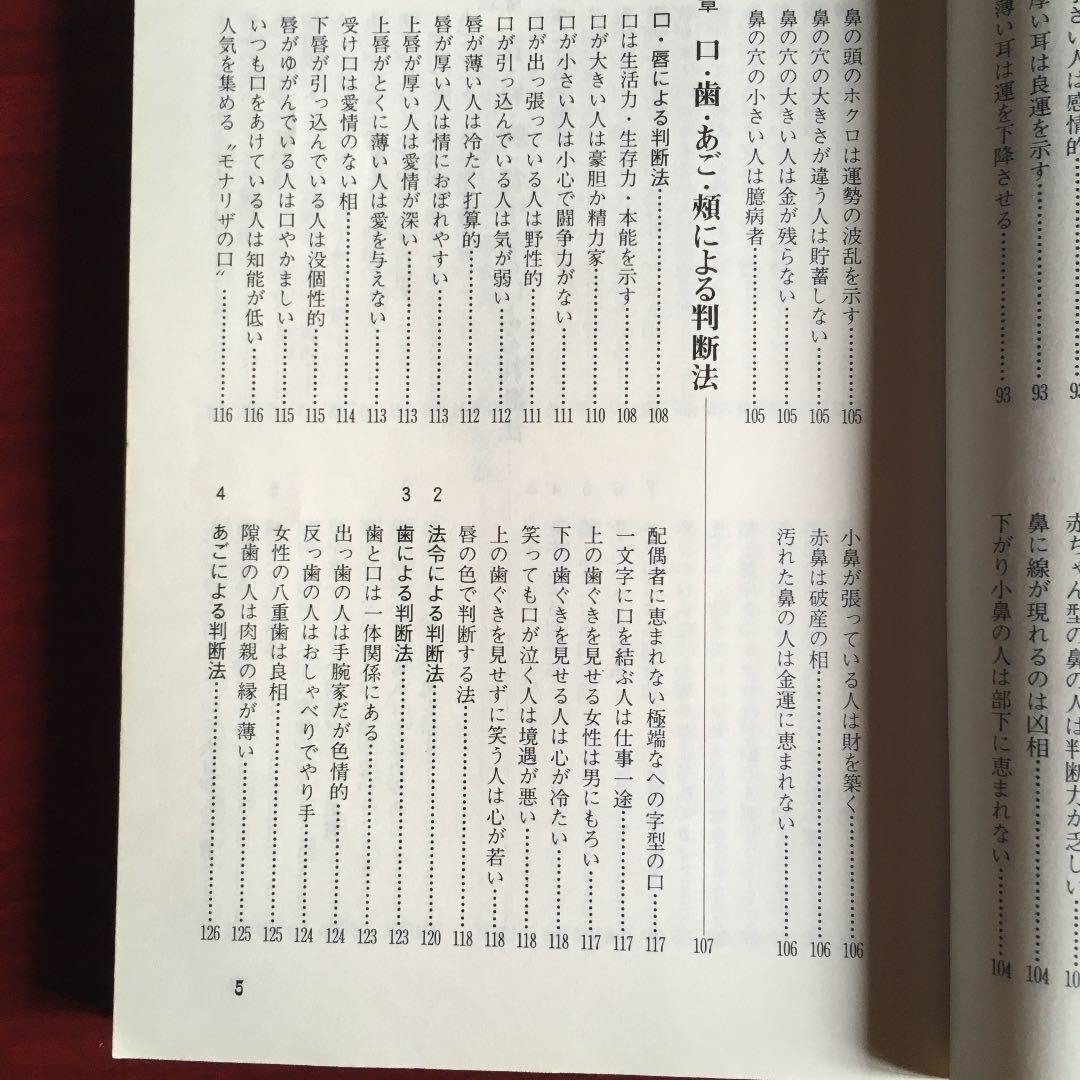 薄い耳は運を下降させる……93
下がり小鼻の人は部下に恵まれない……104
厚い耳は良運を示す……93
鼻に線が現れるのは凶相……104
鼻の頭のホクロは運勢の波乱を示す……105
鼻の穴の大きさが違う人は貯蓄しない……105
鼻の穴の大きい人は金が残らない……105
鼻の穴の小さい人は臆病者……105
小鼻が張っている人は財を築く……106
赤鼻は破産の相……106
汚れた鼻の人は金運に恵まれない……106
章 口・歯・あご・頰による判断法 107
口・唇による判断法……108
口は生活力・生存力・本能を示す……108
口が大きい人は豪胆か精力家……110
口が小さい人は小心で闘争力がない……111
口が出っ張っている人は野性的……111
口が引っ込んでいる人は気が弱い……112
唇が薄い人は冷たく打算的……112
唇が厚い人は情におぼれやすい……113
上唇が厚い人は愛情が深い……113
上唇がとくに薄い人は愛を与えない……113
受け口は愛情のない相……114
下唇が引っ込んでいる人は没個性的……115
唇がゆがんでいる人は口やかましい……115
いつも口をあけている人は知能が低い……116
人気を集める〝モナリザの口〟……116
配偶者に恵まれない極端なへの字型の口……117
一文字に口を結ぶ人は仕事一途……117
上の歯ぐきを見せる女性は男にもろい……117
下の歯ぐきを見せる人は心が冷たい……118
笑っても口が泣く人は境遇が悪い……118
上の歯ぐきを見せずに笑う人は心が若い……118
唇の色で判断する法……118
2 法令による判断法……120
3 歯による判断法……123
歯と口は一体関係にある……123
出っ歯の人は手腕家だが色情的……124
反っ歯の人はおしゃべりでやり手……124
女性の八重歯は良相……125
隙歯の人は肉親の縁が薄い……125
4 あごによる判断法……126
5